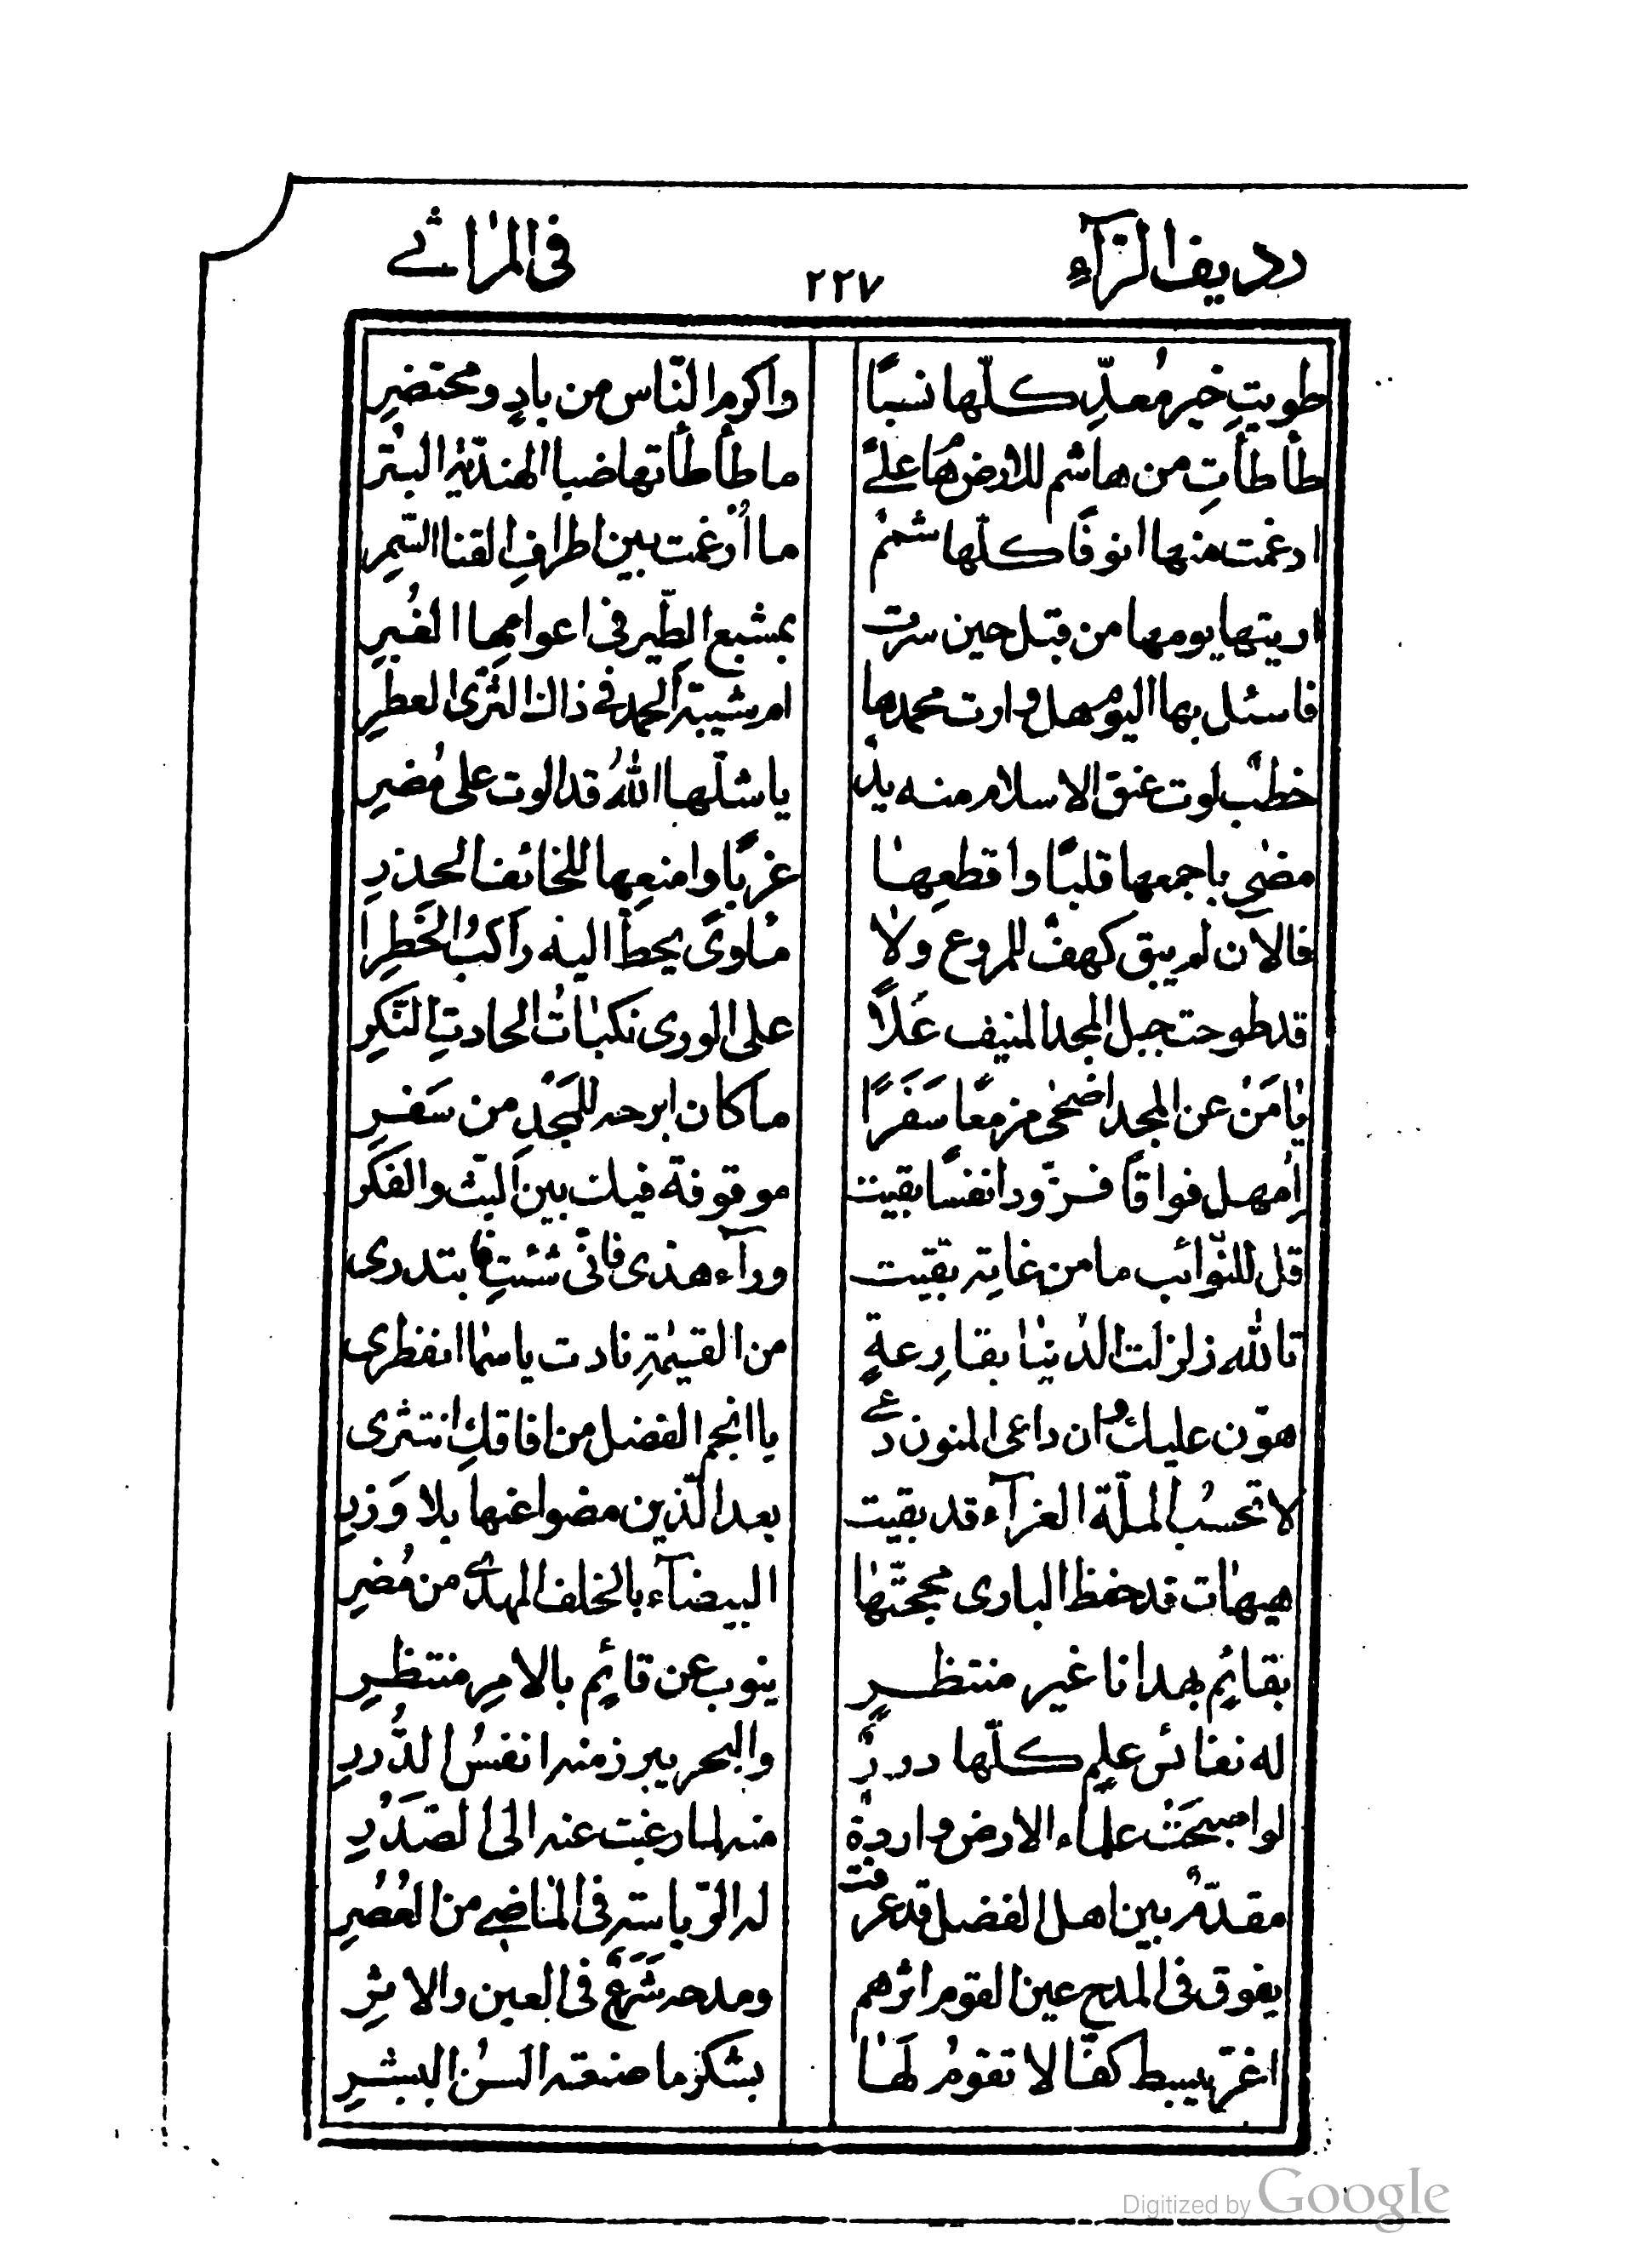 رديف الرآء ٢٢٧ فى المراثے
طويتِ خير معدّ كلّها نسبًا واكرم النّاس من بادٍ ومحتضرِ
طأطأتِ من هاشم للارض هام على ما طأطأتها ضبا الهنديّة البتر
ادغمت منها انوفًا كلّها شمم ما اُدغمت بين اطرافِ القنا السّمرِ
اريتها يومها من قبل حين سرت بمشبع الطّير فى اعوامها الغُبرِ
فاسئل بها اليوم هل وارت محمدها ام شيبة الحمد فى ذاك الثرى العطر
خطبٌ لوت عنق الاسلام منه يدٌ يا شلّها اللهُ قد الوت على مُضرِ
مضى باجمعها قلبًا واقطعها غربًا وامنعها للخائف الحذر
فالآن لم يبق كهفٌ للمروع ولا مأوىً يحطّ اليه راكبُ الخَطرِ
قد طوحت جبل المجد المنيف عَلًا على الورى نكباتُ الحادثِ النّكرِ
يا مَن عن المجد اضحى مزمعًا سَفَرًا ما كان ابرحه للمَجْدِ من سَفرِ
اِمهل فواقًا فزوّد انفسًا بقيت موقوفة فيك بين البثّ والفكر
قل للنّوائب ما من غاية بقيت ورآء هذى فانّى شئتِ فابتدرى
تالله زلزلت الدّنيا بقارِعةٍ من القيمةِ نادت يا سما انفطرى
هوّن عليك وان داعى المنون دعے يا انجم الفضل من افاقكِ انتثرى
لا تحسبُ الملّة الغرآء قد بقيت بعد الّذين مضوا عنها بلا وَزرِ
هيهات قد حفظ البارى محجّتها البيضآء بالخلف المهدىّ من مُضرِ
بقائم بهدانا غير منتظرٍ ينوب عن قائمٍ بالامرِ منتظرِ
له نفائس علمٍ كلّها دررٌ والبحر يبرز منه انفسُ الدُّررِ
لو اصبحتْ علماء الارض واردة منه لما رغبت عنه الى الصَدَرِ
مقدّم بين اهل الفضل قد عرفت له الرّياسة فى الماضے من العُصُرِ
يفوق فى المدح عين القوم اثرهم ومدحه شَرَعٌ فى العين والاثرِ
اغرّ يبسط كفًّا لا تقومُ لها بشكر ما صنعته السنُ البشرِ
Digitized by Google